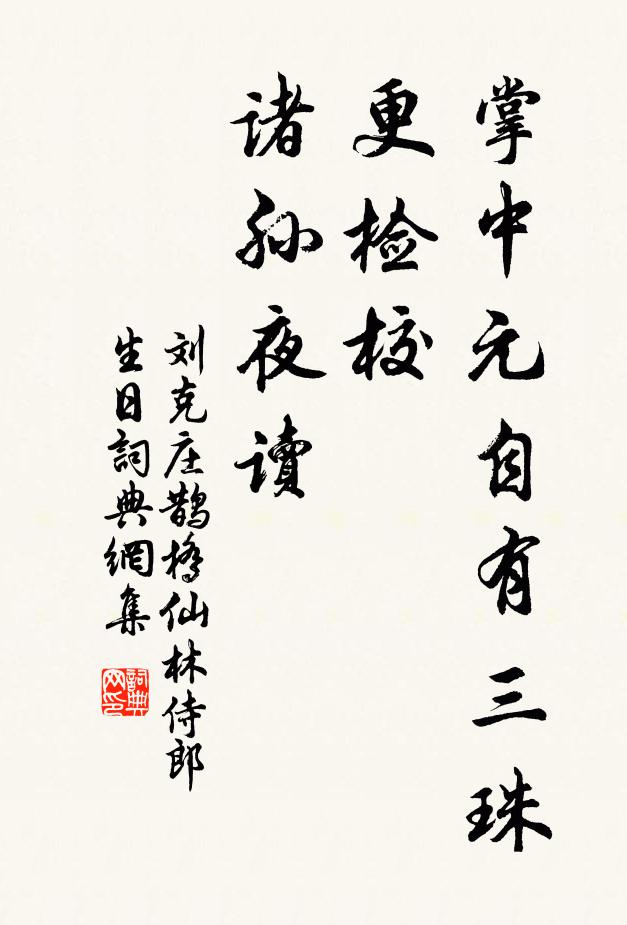 掌中元自有三珠
更检校
诸孙夜讀
刘克庄鹊橋仙林侍郎
生日詞典網集
詞典网印